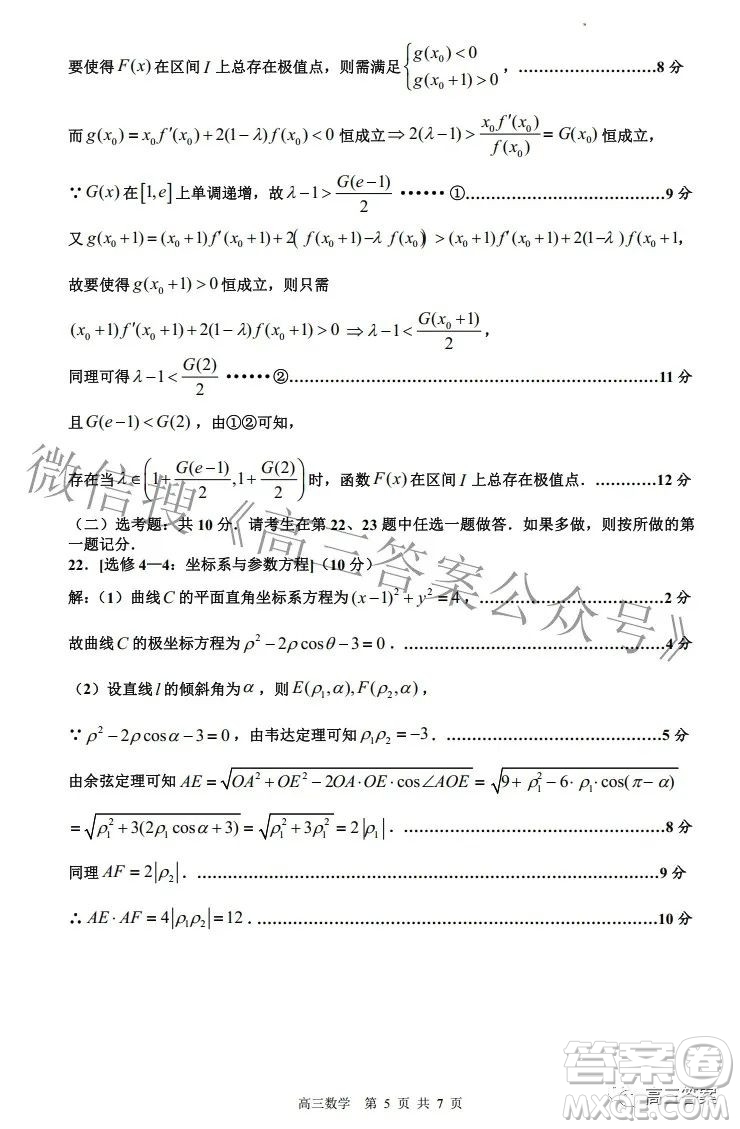 要使得F(x)在区间 I 上总存在极值点，则需满足{g(x₀)<0 g(x₀+1)>0，……………………8 分
而g(x₀)=x₀f′(x₀)+2(1−λ)f(x₀)<0 恒成立⇒2(λ−1)>x₀f′(x₀)/f(x₀)=G(x₀)恒成立，
∵G(x)在[1,e]上单调递增，故λ−1>G(e−1)/2 ······ ①……………………………9 分
又g(x₀+1)=(x₀+1)f′(x₀+1)+2(f(x₀+1)−λ f(x₀))>(x₀+1)f′(x₀+1)+2(1−λ)f(x₀+1，
故要使得g(x₀+1)>0恒成立，则只需
(x₀+1)f′(x₀+1)+2(1−λ)f(x₀+1)>0 ⇒λ−1<G(x₀+1)/2，
同理可得λ−1<G(2)/2 ······ ②……………………………………………………11 分
且G(e−1)<G(2)，由①②可知，
存在当λ∈(1+G(e−1)/2,1+G(2)/2)时，函数F(x)在区间 I 上总存在极值点．…………12 分
（二）选考题：共 10 分．请考生在第 22、23 题中任选一题做答．如果多做，则按所做的第
一题记分．
22．[选修 4—4：坐标系与参数方程]（10 分）
解：（1）曲线C的平面直角坐标系方程为(x−1)²+y²=4，……………………………2 分
故曲线C的极坐标方程为ρ²−2ρcosθ−3=0．…………………………………………4 分
（2）设直线l的倾斜角为α，则E(ρ₁,α),F(ρ₂,α)，
∵ρ²−2ρcosα−3=0，由韦达定理可知ρ₁ρ₂=−3．……………………………………5 分
由余弦定理可知AE=√(OA²+OE²−2OA·OE·cos∠AOE)=√(9+ρ₁²−6·ρ₁·cos(π−α))
=√(ρ₁²+3(2ρ₁cosα+3))=√(ρ₁²+3ρ₁²)=2|ρ₁|．……………………………………8 分
同理AF=2|ρ₂|．………………………………………………………………………9 分
∴AE·AF=4|ρ₁ρ₂|=12．………………………………………………………………10 分
微信搜《高三答案公众号》
高三数学 第 5 页 共 7 页
答案卷
高三答案
MXQE.COM